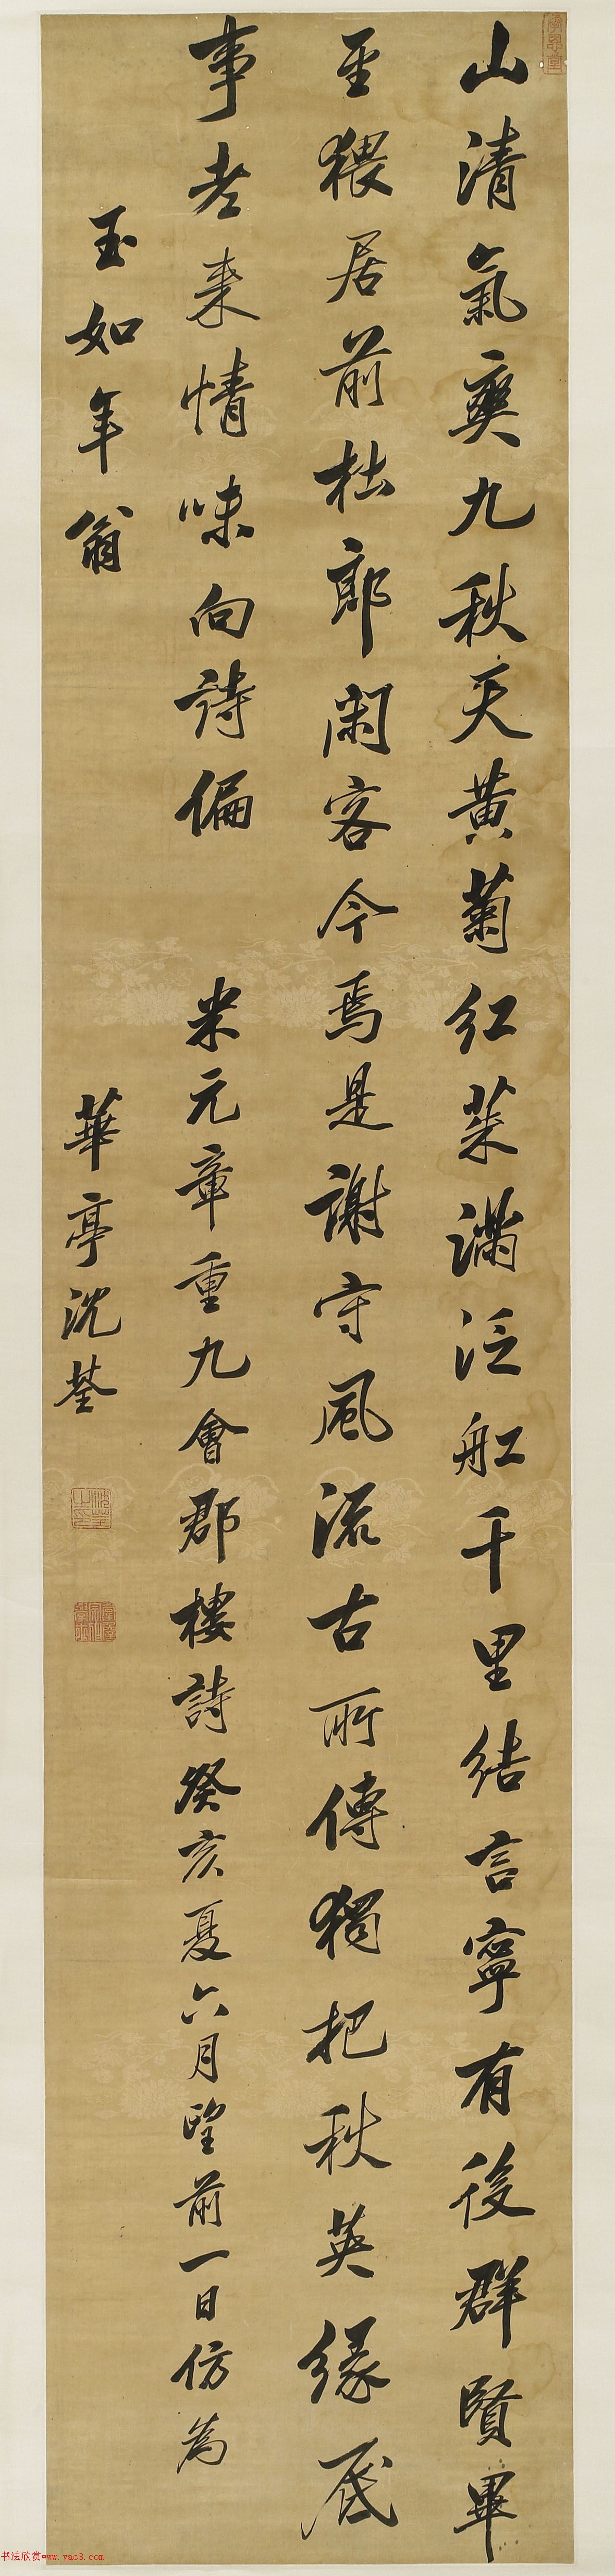 山清氣爽九秋天黃菊紅茱滿泛舡千里結言寧有後群賢畢
至猥居前杜郎閑客今焉是謝守風流古所傳獨把秋英緣底
事老來情味向詩偏
米元章重九會郡樓詩癸亥夏六月望前一日仿為
玉如年翁
華亭沈荃
书法欣赏www.yac8.com